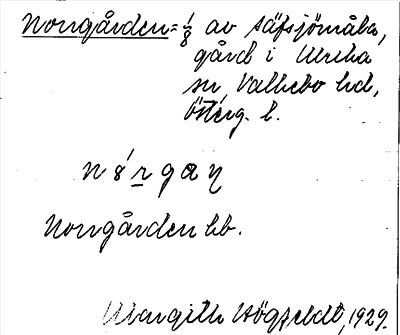 Norrgården = 1/8 av Säfsjömåla,
gård i Ulrika
sn, Valkebo hd,
Österg. l.
Norrgården hb.
Margith Högfeldt, 1929.